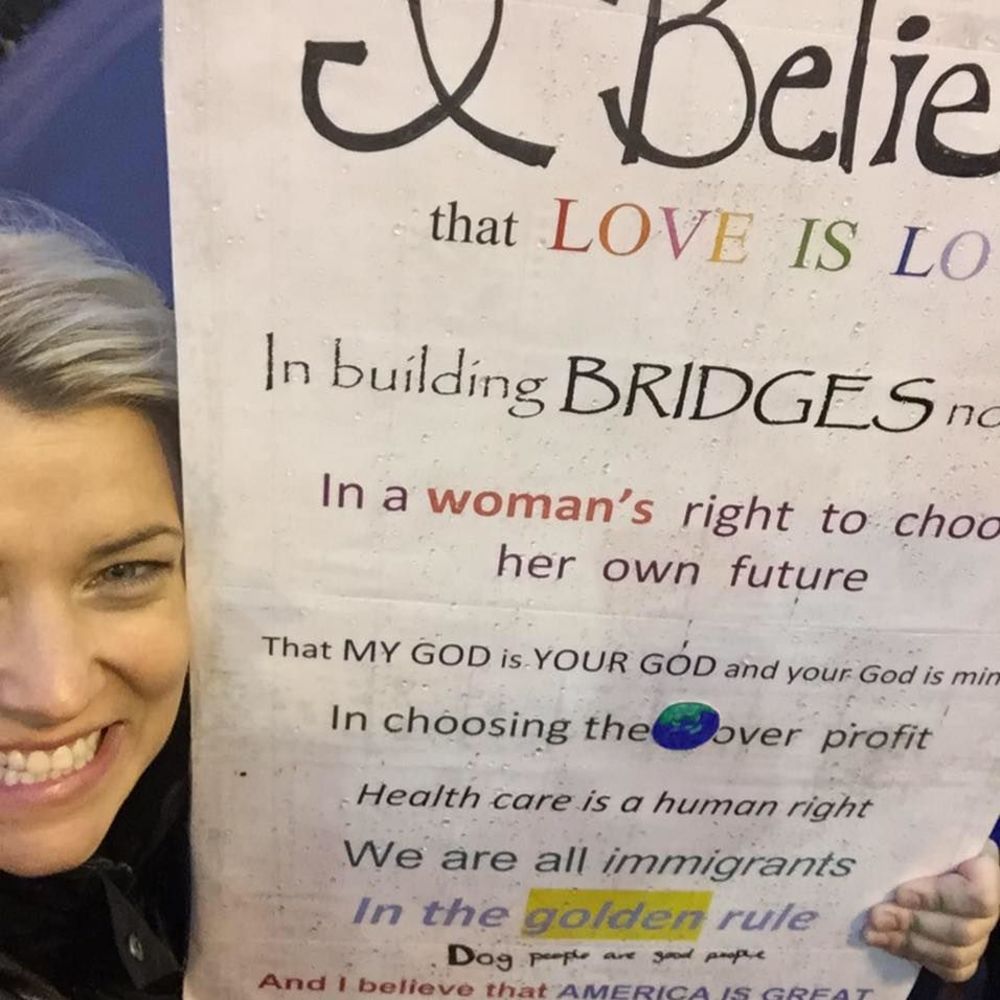 I Belie
that LOVE IS LO
In building BRIDGES no
In a woman's right to choo
her own future
That MY GOD is YOUR GOD and your God is min
In choosing the over profit
Health care is a human right
We are all immigrants
In the golden rule
Dog people are good people
And I believe that AMERICA IS GREAT